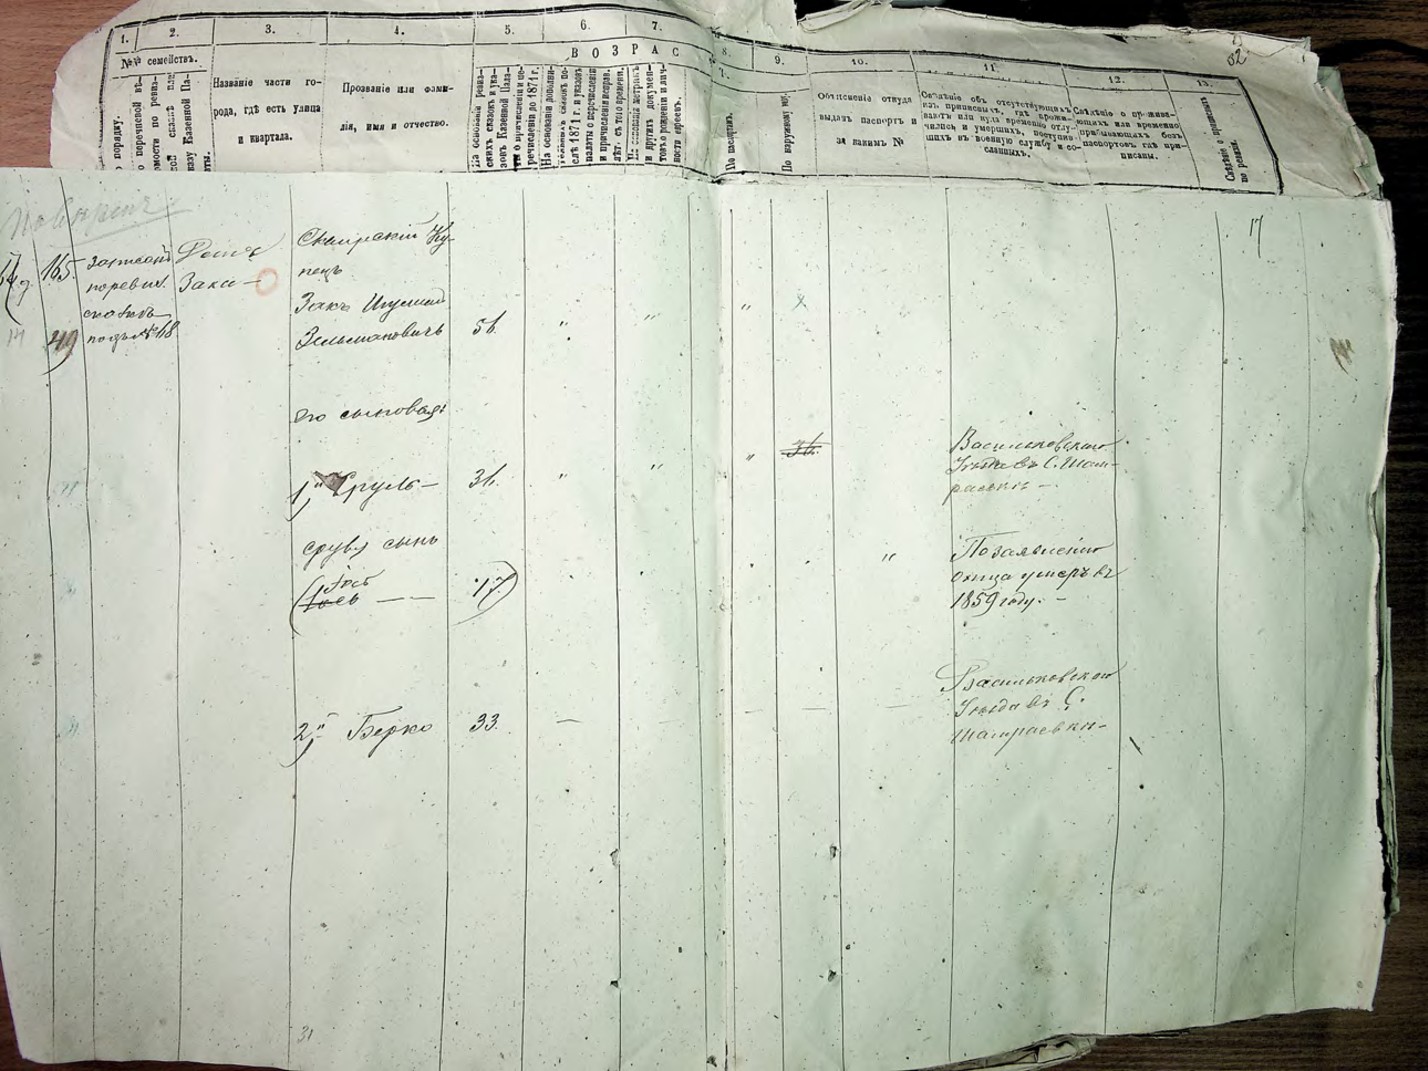 1.
2.
3.
4.
5.
6.
7.
8.
9.
10.
11.
12.
13.
82
№№ семействъ.
ВОЗРАС
по порядку.
по перечневой вѣ-
домости по ревиз-
ской сказкѣ или
указу Казенной Па-
латы.
Названіе части го-
рода, гдѣ есть улица
и квартала.
Прозваніе или фами-
лія, имя и отчество.
На основаніи ревиз-
скихъ сказокъ и ука-
зовъ Казенной Пала-
ты о причисленіи и пе-
речисленіи до 1871 г.
На основаніи дополни-
тельныхъ сказокъ по-
слѣ 1871 г. и указовъ
палаты о перечисленіи
и причисленіи исправ.
лѣтъ съ того времени.
На основаніи метрикъ
и другихъ докумен-
товъ о рожденіи и лич-
ности евреевъ.
По паспортам.
По наружному вид.
Объясненіе откуда
выданъ паспортъ и
за какимъ №
Свѣдѣніе об отсутствующихъ
изъ приписныхъ, гдѣ прожи-
ваютъ или куда временно отлу-
чились и умершихъ, поступив-
шихъ въ военную службу и со-
сланныхъ.
Свѣдѣніе о прожива-
ющихъ или временно
прибывающихъ безъ
паспортовъ гдѣ при-
писаны.
Свѣдѣніе о
по ревизіи.
17
165.
записанъ
по ревиз.
сказкѣ
подъ №68
49
Заки —
Сквирскій Ку-
пецъ
Закъ Шулимъ
Зельмановичъ
56.
Его сыновья:
1й Сруль —
36.
"
"
"
36.
Васильковского
Уѣзда въ С. Шам-
раевкѣ —
Срула сынъ
17.
По заявленію
отца умеръ въ
1859 году. —
2й Берко
33.
Васильковского
Уѣзда въ С.
Шамраевки —
31